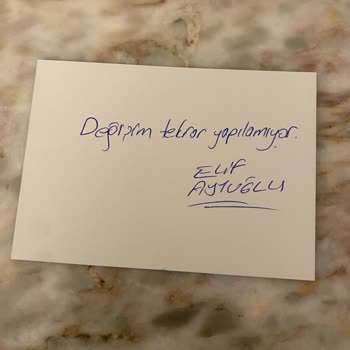 Değişim tekrar yapılamıyor.
ELİF
AYTUĞLU